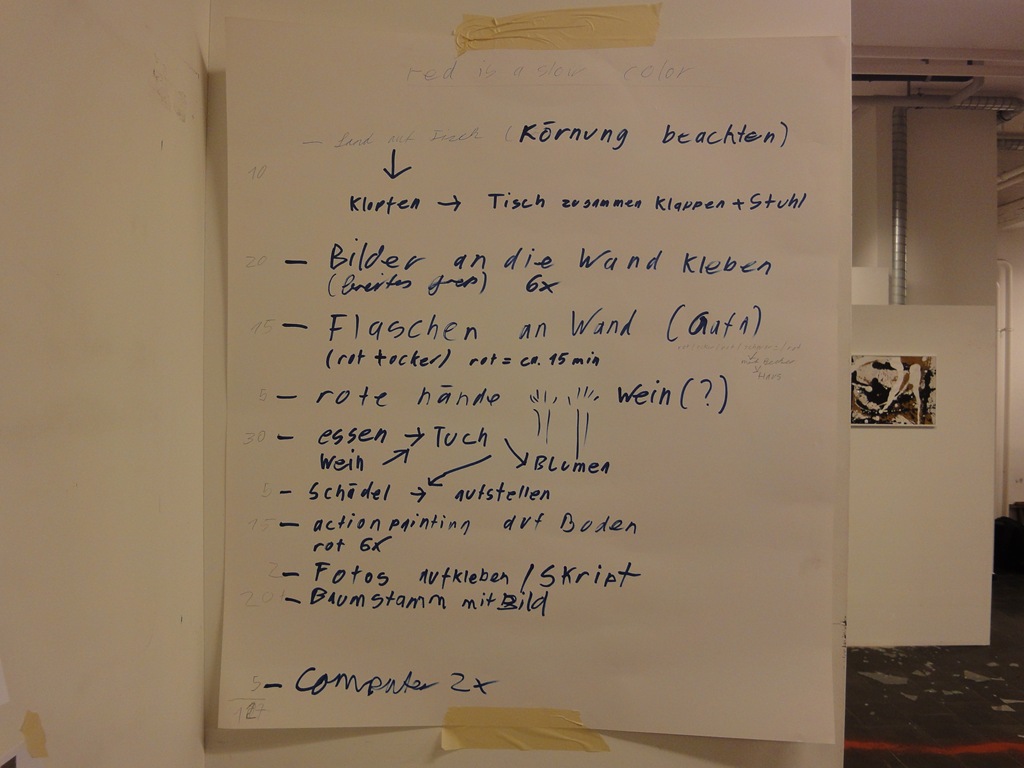 red is a slow color
- Sand auf Tisch (Körnung beachten)
10
↓
Klopfen → Tisch zusammen klappen + Stuhl
20 - Bilder an die Wand kleben
(breites) 6x
15 - Flaschen an Wand (auf 1)
(rot + ocker) rot = ca. 15 min
5 - rote hände Wein (?)
30 - essen → Tuch
Wein Blumen
5 - Schädel → aufstellen
15 - actionpainting auf Boden
rot 6x
2 - Fotos aufkleben / Skript
20 - Baumstamm mit Bild
5 - Computer 2x
127